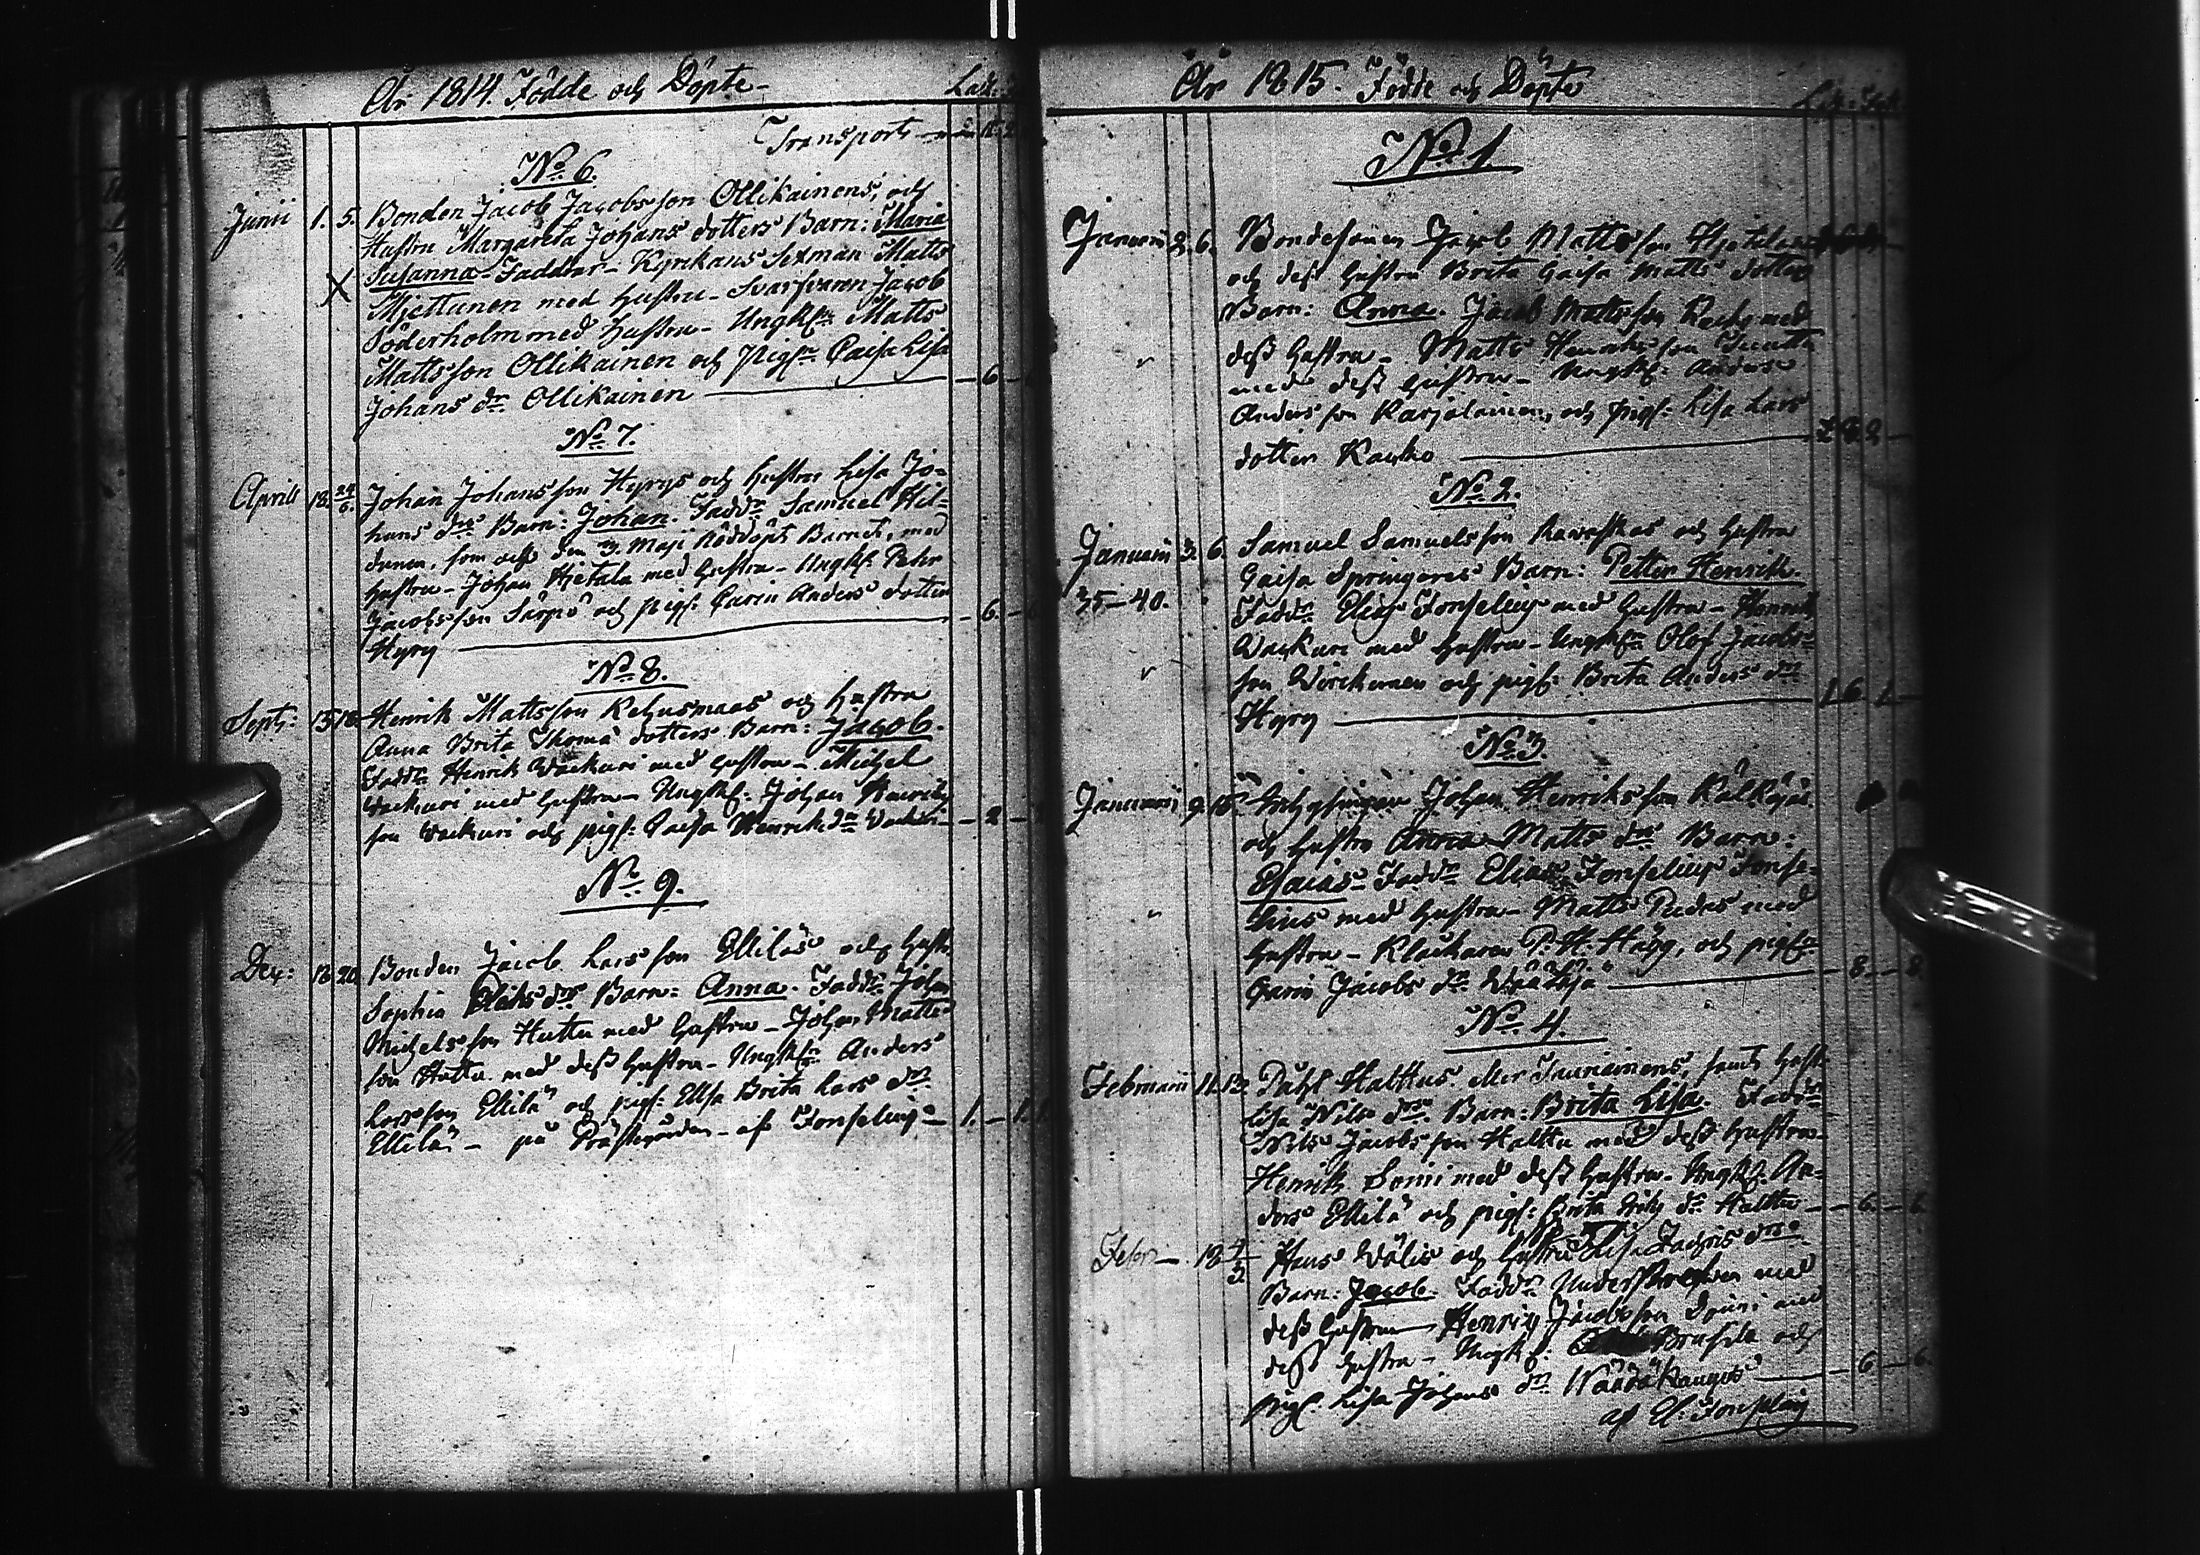 År 1814. Födde och Döpte
Transport
No 6.
Junii 1. 5. Bonden Jacob Jacobsson Ollikainens, och
Hustru Margareta Johans dotters Barn: Maria
Susanna. Faddrar - Kyrckans Sexman Matts
Mjettunen med hustru - Svarfvaren Jacob
Söderholm med hustru - Ungkn Matts
Mattsson Ollikainen och pign Caisa Lisa
Johans dr Ollikainen - 6 -
No 7.
Aprill 18. 24/6. Johan Johansson Hyrys och hustru Lisa Jo-
hans drs Barn: Johan. Faddr Samuel Hil-
dunen, som ock den 3. Maji nöddöpt Barnet, med
hustru - Johan Hjetala med hustru - Ungk: Pehr
Jacobsson Särpö och pig: Carin Anders dotter
Hyry - 6 -
No 8.
Septr: 13 18. Henrik Mattsson Rehusmaas och hustru
Anna Brita Thoma dotters Barn: Jacob.
Faddr Henrik Wackuri med hustru - Michel
Wackuri med hustru - Ungk: Johan Henrics
son Wackuri och pig: Caisa Henriks dr Wackuri - 2 -
No 9.
Dec: 18 20. Bonden Jacob Lars son Ellilä och hustr
Sophia drs Barn: Anna. Faddr Johan
Michels son Huttu med hustru - Johan Matts
son Huttu med dess hustru - Ungkn Anders
Larsson Ellilä och pig: Elsa Brita Lars dr
Ellilä - på Prästegården - af Fonselius - 1. -
År 1815. Födde och Döpte
No 1.
Januarii 2. 6. Bondesonen Jacob Mattsson Hjetala
och dess hustru Brita Caisa Matts dotters
Barn: Anna. Jacob Mattsson med
dess hustru - Matts Henriksson
med dess hustru - Ungk: Anders
Andersson Karjalainen, och pig: Lisa Lars
dotter Kauko
No 2.
Januarii 3. 6. Samuel Samuelsson och hustru
Caisa Springares Barn: Petter Henrik.
35-40. Faddr Elias Fonselius med hustru - Henrik
Wackuri med hustru - Ungkn Olof Jacobs-
son Wirckunen och pig: Brita Anders dr
Hyry
No 3.
Januarii 9. 15. Inhysingen Johan Henriksson Kälkäjäs
och hustru Anna Matts drs Barn:
Esaias. Faddr Elias Fonselius Fonse-
lius med hustru - Matts Pudas med
hustru - Klockaren P. H. Hägg, och pign
Carin Jacobs dr Wäätäjä - 8 - 8.
No 4.
Februarii 11. 12. Påhl Halttus eller Tauriainens, samt hustr
Lisa Nils drs Barn: Brita Lisa. Faddr
Nils Jacobsson Halttu med dess hustru -
Henrik Sorri med dess hustru - Ungk: An-
ders Ellilä och pig: Brita dr Halttu - 6 - 6
Febr - 12 Hans Wälis och hustru Lisa Zachris drs
Barn: Jacob. Faddr med
dess hustru - Henric Jacobsson med
dess hustru - Ungk: och
pig: Lisa Johans dr Näädäkangas - 6 - 6.
af El: Fonselius